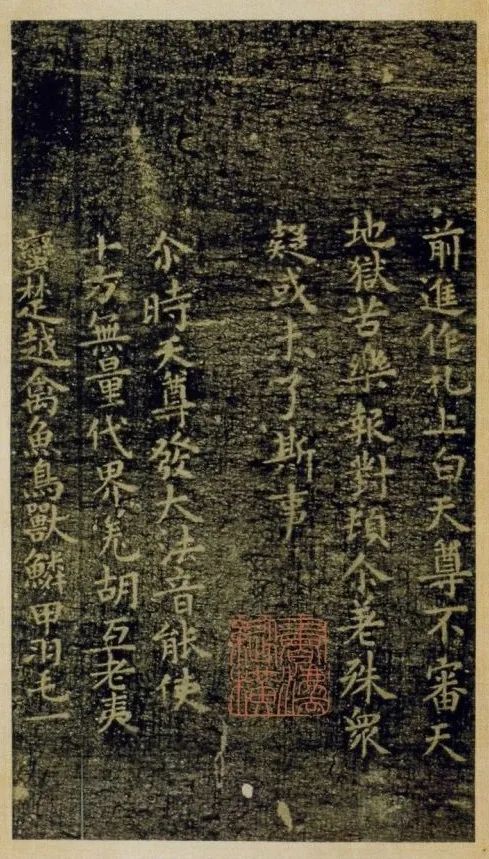 前進作礼上白天尊不審天
地獄苦樂報對頓尒差殊衆
疑或未了斯事
尒時天尊發大法音能使
十方無量代界羌胡互老夷
蠻楚越禽魚鳥獸鱗甲羽毛一
書法縱橫